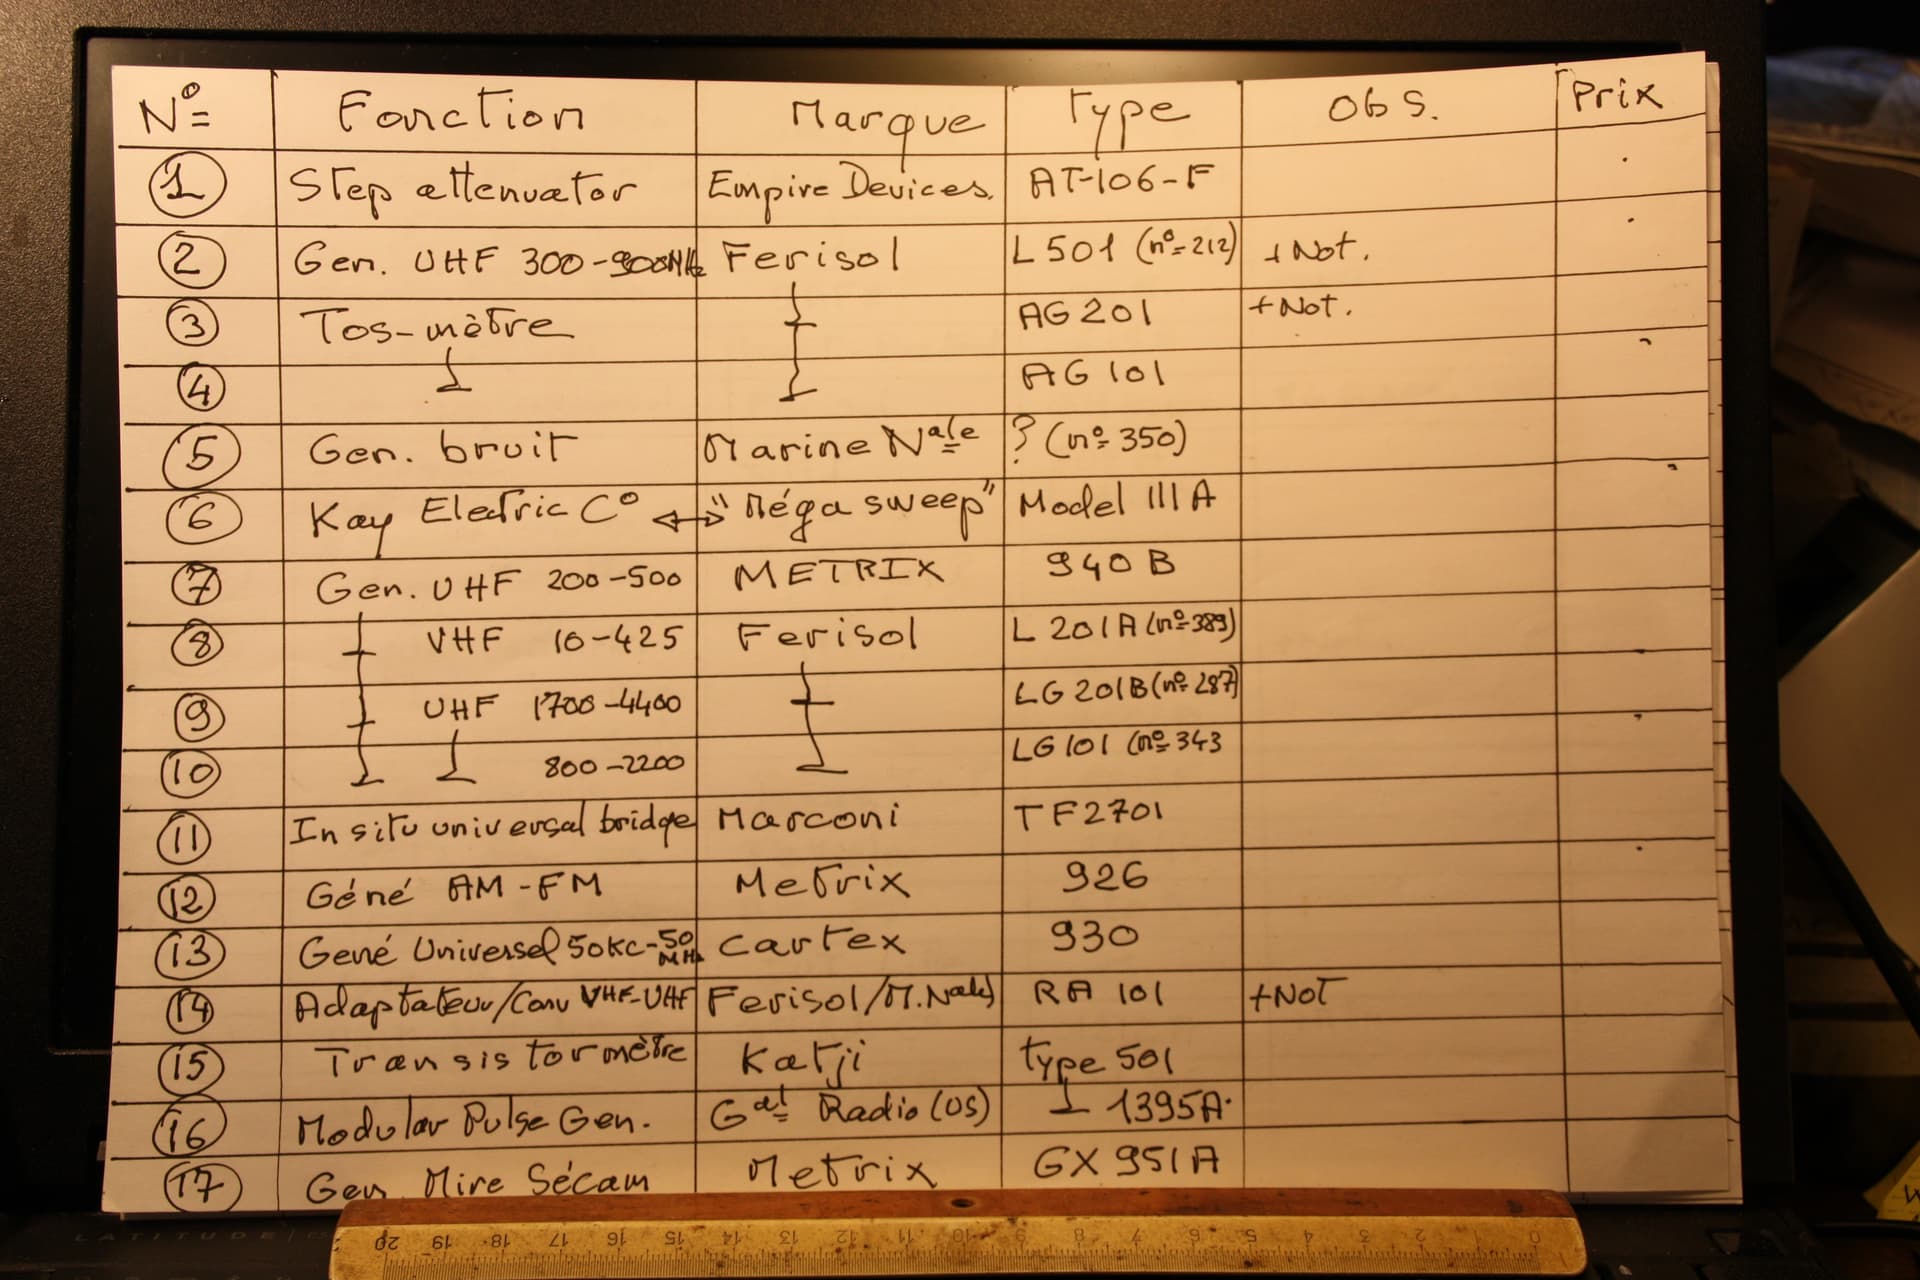 Nº Fonction Marque Type Obs. Prix
1 Step attenuator Empire Devices. AT-106-F
2 Gen. UHF 300-900MHz Ferisol L501 (nº 212) + Not.
3 Tos-mètre AG 201 + Not.
4 AG 101
5 Gen. bruit Marine Nale ? (nº 350)
6 Kay Electric Cº ↔ "Méga sweep" Model 111 A
7 Gen. UHF 200-500 METRIX 940 B
8 VHF 10-425 Ferisol L 201A (nº 389)
9 UHF 1700-4400 LG 201B (nº 287)
10 800-2200 LG 101 (nº 343
11 In situ universal bridge Marconi TF2701
12 Géné AM-FM Metrix 926
13 Gené Universel 50KC-50 MHz Cartex 930
14 Adaptateur/Conv VHF-UHF Ferisol/M.Nale) RA 101 +Not
15 Transistormètre Katji type 501
16 Modular Pulse Gen. Gal Radio (US) 1395A.
17 Gen Mire Sécam Metrix GX 951A
20 19 18 17 16 15 14 13 12 11 10 9 8 7 6 5 4 3 2 1 0
LATITUDE